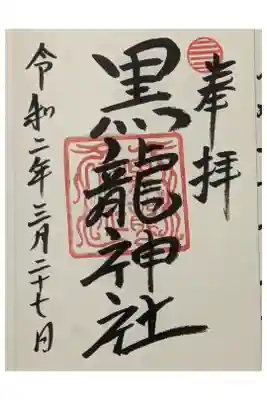 奉拝
黒龍神社
令和二年三月二十七日